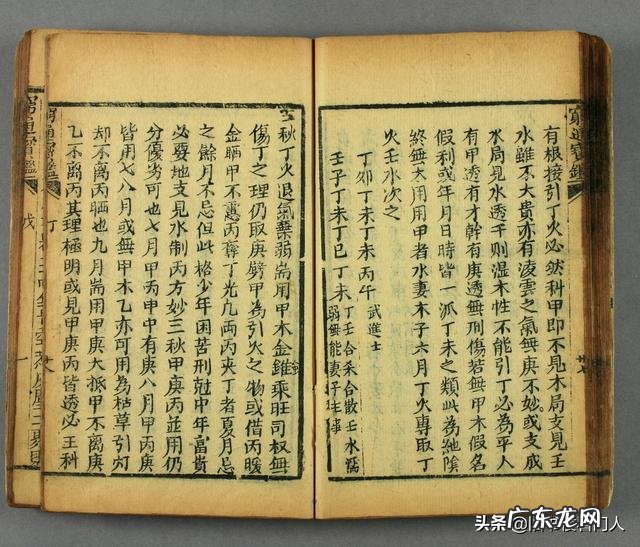 窮通寶鑑
有根接引丁火必然科甲即不見木局支見壬
水雖不大貴亦有凌雲之氣無庚不妙或支成
水局見水透干則湿木性不能引丁必為平人
有甲透者有才幹有庚透無刑傷若無甲木假名
假利或年月日時皆一派丁未之類此為純陰
終無大用用甲者水妻木子六月丁火專取丁
火壬水次之
丁卯丁未丁未丙午 武進士
壬子丁未丁巳丁未 丁壬合來合散壬水濡
弱無能妻子主事
三秋丁火退氣柔弱耑用甲木金雖乘旺司权無
傷丁之理仍取庚劈甲為引火之物或借丙暖
金晒甲不慮丙奪丁光凡兩丙夾丁者夏月忌
之餘月不忌但此格少年困苦刑尅中年富貴
必要地支見水制丙方妙三秋甲庚丙並用仍
分優劣可也七月甲丙申中有庚八月甲丙庚
皆用七八月或無甲木乙亦可用為枯草引灯
却不离丙晒也九月耑用甲庚大抵甲不离庚
乙不离丙其理極明或見甲庚丙皆透必主科
窮通寶鑑 丁
窮通寶鑑 戊
头条
广东龙网